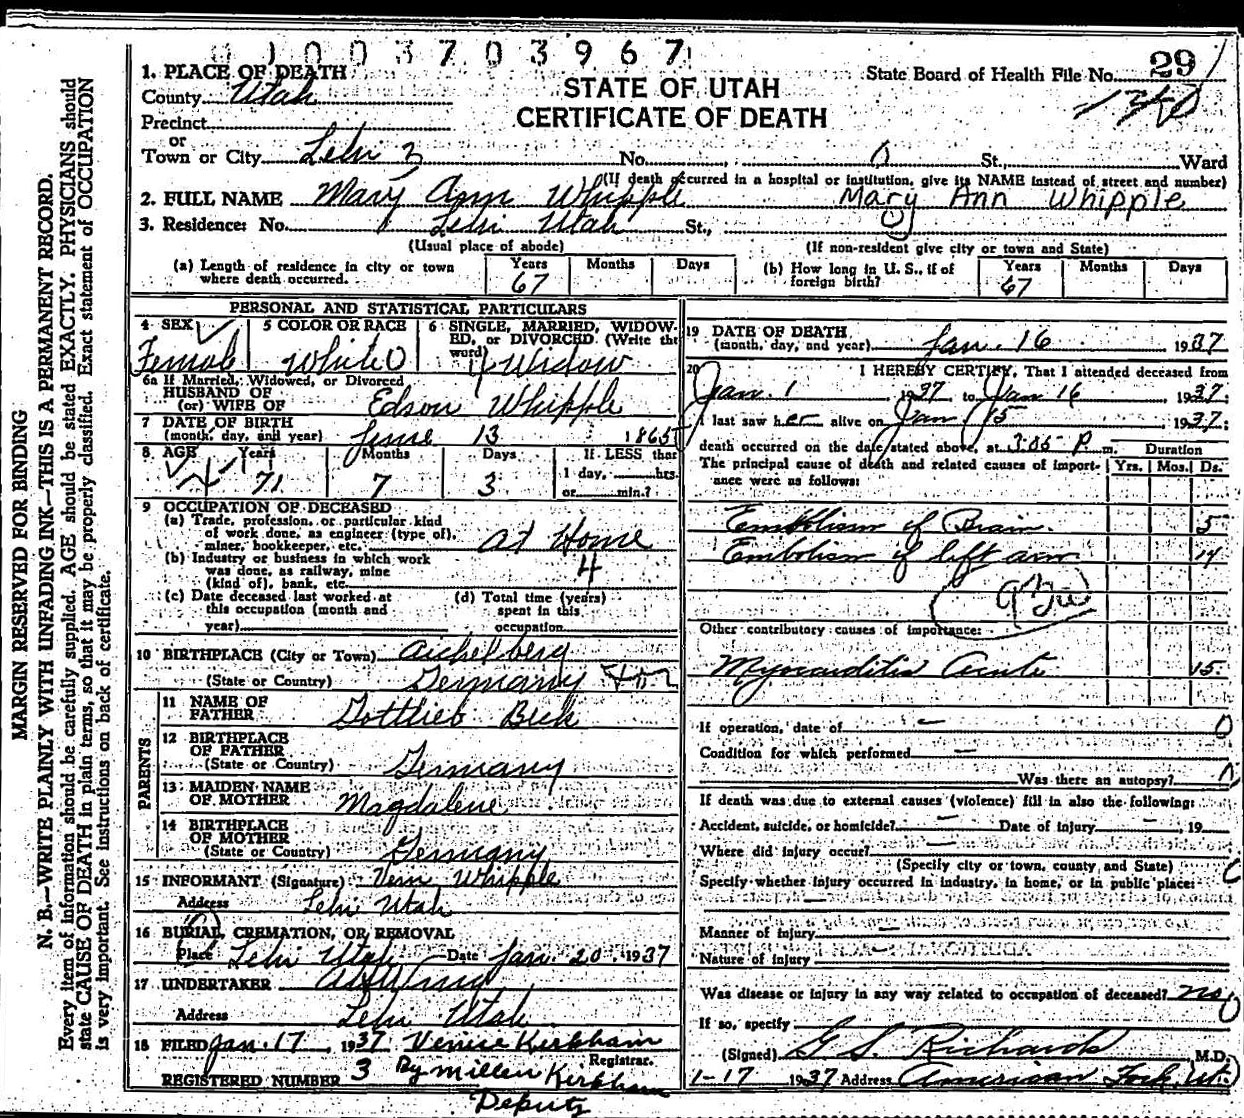 0100370 3967
1. PLACE OF DEATH
State Board of Health File No. 29
County Utah
STATE OF UTAH
CERTIFICATE OF DEATH
Precinct
or
Town or City Lehi No. 0 St., Ward
(If death occurred in a hospital or institution, give its NAME instead of street and number)
2. FULL NAME Mary Ann Whipple Mary Ann Whipple
3. Residence: No. Lehi Utah St.,
(Usual place of abode) (If non-resident give city or town and State)
(a) Length of residence in city or town where death occurred. Years 67 Months Days
(b) How long in U. S., if of foreign birth? Years 67 Months Days
PERSONAL AND STATISTICAL PARTICULARS
4 SEX Female
5 COLOR OR RACE White
6 SINGLE, MARRIED, WIDOWED, or DIVORCED (Write the word) Widow
6a If Married, Widowed, or Divorced
HUSBAND OF
(or) WIFE OF Edson Whipple
7 DATE OF BIRTH
(month, day, and year) June 13 1865
8 AGE Years 71 Months 7 Days 3 If LESS than
1 day, hrs.
or min.?
9 OCCUPATION OF DECEASED
(a) Trade, profession, or particular kind
of work done, as engineer (type of),
miner, bookkeeper, etc. at Home
(b) Industry or business in which work
was done, as railway, mine
(kind of), bank, etc. 4
(c) Date deceased last worked at
this occupation (month and
year)
(d) Total time (years)
spent in this
occupation
10 BIRTHPLACE (City or Town) Aichelberg
(State or Country) Germany
PARENTS
11 NAME OF
FATHER Gottlieb Beck
12 BIRTHPLACE
OF FATHER
(State or Country) Germany
13 MAIDEN NAME
OF MOTHER Magdalene
14 BIRTHPLACE
OF MOTHER
(State or Country) Germany
15 INFORMANT (Signature) Vern Whipple
Address Lehi Utah
16 BURIAL, CREMATION, OR REMOVAL
Place Lehi Utah Date Jan. 20 1937
17 UNDERTAKER
Address Lehi Utah
18 FILED Jan. 17, 1937 Venice Kirkham
Registrar.
REGISTERED NUMBER 3 By Millen Kirkham
Deputy
19 DATE OF DEATH
(month, day, and year) Jan. 16 1937
20 I HEREBY CERTIFY, That I attended deceased from
Jan. 1 1937 to Jan 16, 1937.
I last saw her alive on Jan 15 1937.
death occurred on the date stated above, at 3:05 P. m. Duration
The principal cause of death and related causes of importance were as follows: Yrs. Mos. Ds.
Embolism of Brain. 5
Embolism of left arm 14
Other contributory causes of importance:
Myocarditis Acute 15
If operation, date of — 0
Condition for which performed —
Was there an autopsy?
If death was due to external causes (violence) fill in also the following:
Accident, suicide, or homicide? — Date of injury — , 19
Where did injury occur? —
(Specify city or town, county, and State)
Specify whether injury occurred in industry, in home, or in public place:
Manner of injury —
Nature of injury
Was disease or injury in any way related to occupation of deceased? no 0
If so, specify
(Signed) G S. Richards M.D.
1-17 1937 Address American Fork, Ut.
MARGIN RESERVED FOR BINDING
N. B.—WRITE PLAINLY WITH UNFADING INK—THIS IS A PERMANENT RECORD.
Every item of information should be carefully supplied. AGE should be stated EXACTLY. PHYSICIANS should
state CAUSE OF DEATH in plain terms, so that it may be properly classified. Exact statement of OCCUPATION
is very important. See instructions on back of certificate.